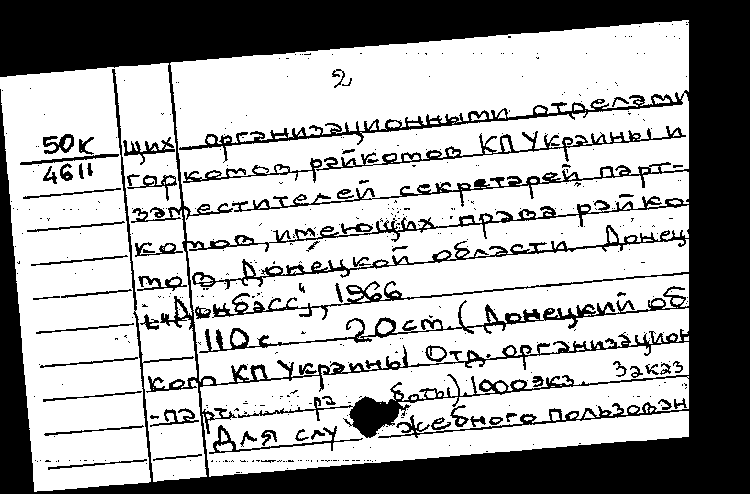 2
50к
4611
щих организационными отделами
горкомов, райкомов КП Украины и
заместителей секретарей парт-
комов, имеющих права райко-
мов, Донецкой области. Донец
"Донбасс", 1966
110 с. 20 см. (Донецкий об
ком КП Украины Отд. организацион
-парт ра боты). 1000 экз. Заказ
Для слу жебного пользован